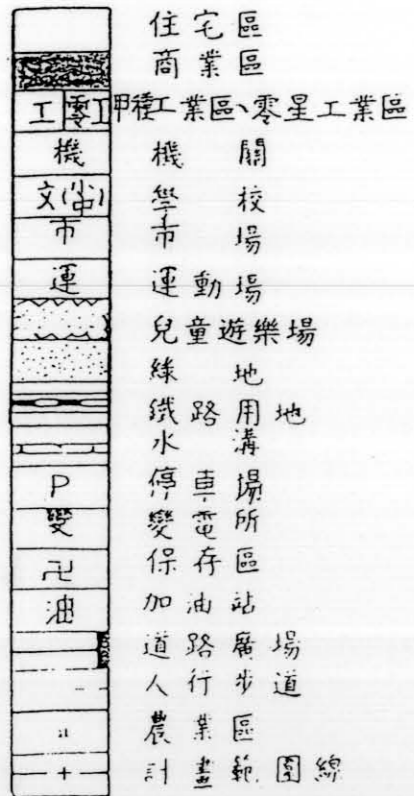 住宅區
商業區
工 零工 甲種工業區、零星工業區
機 機關
文(小中) 學校
市 市場
運 運動場
兒童遊樂場
綠地
鐵路用地
水溝
P 停車場
變 變電所
卍 保存區
油 加油站
道路廣場
人行步道
農業區
計畫範圍線